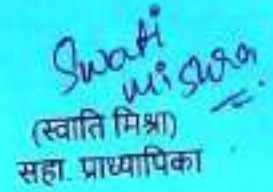 Swati
Mishra
(स्वाति मिश्रा)
सहा. प्राध्यापिका